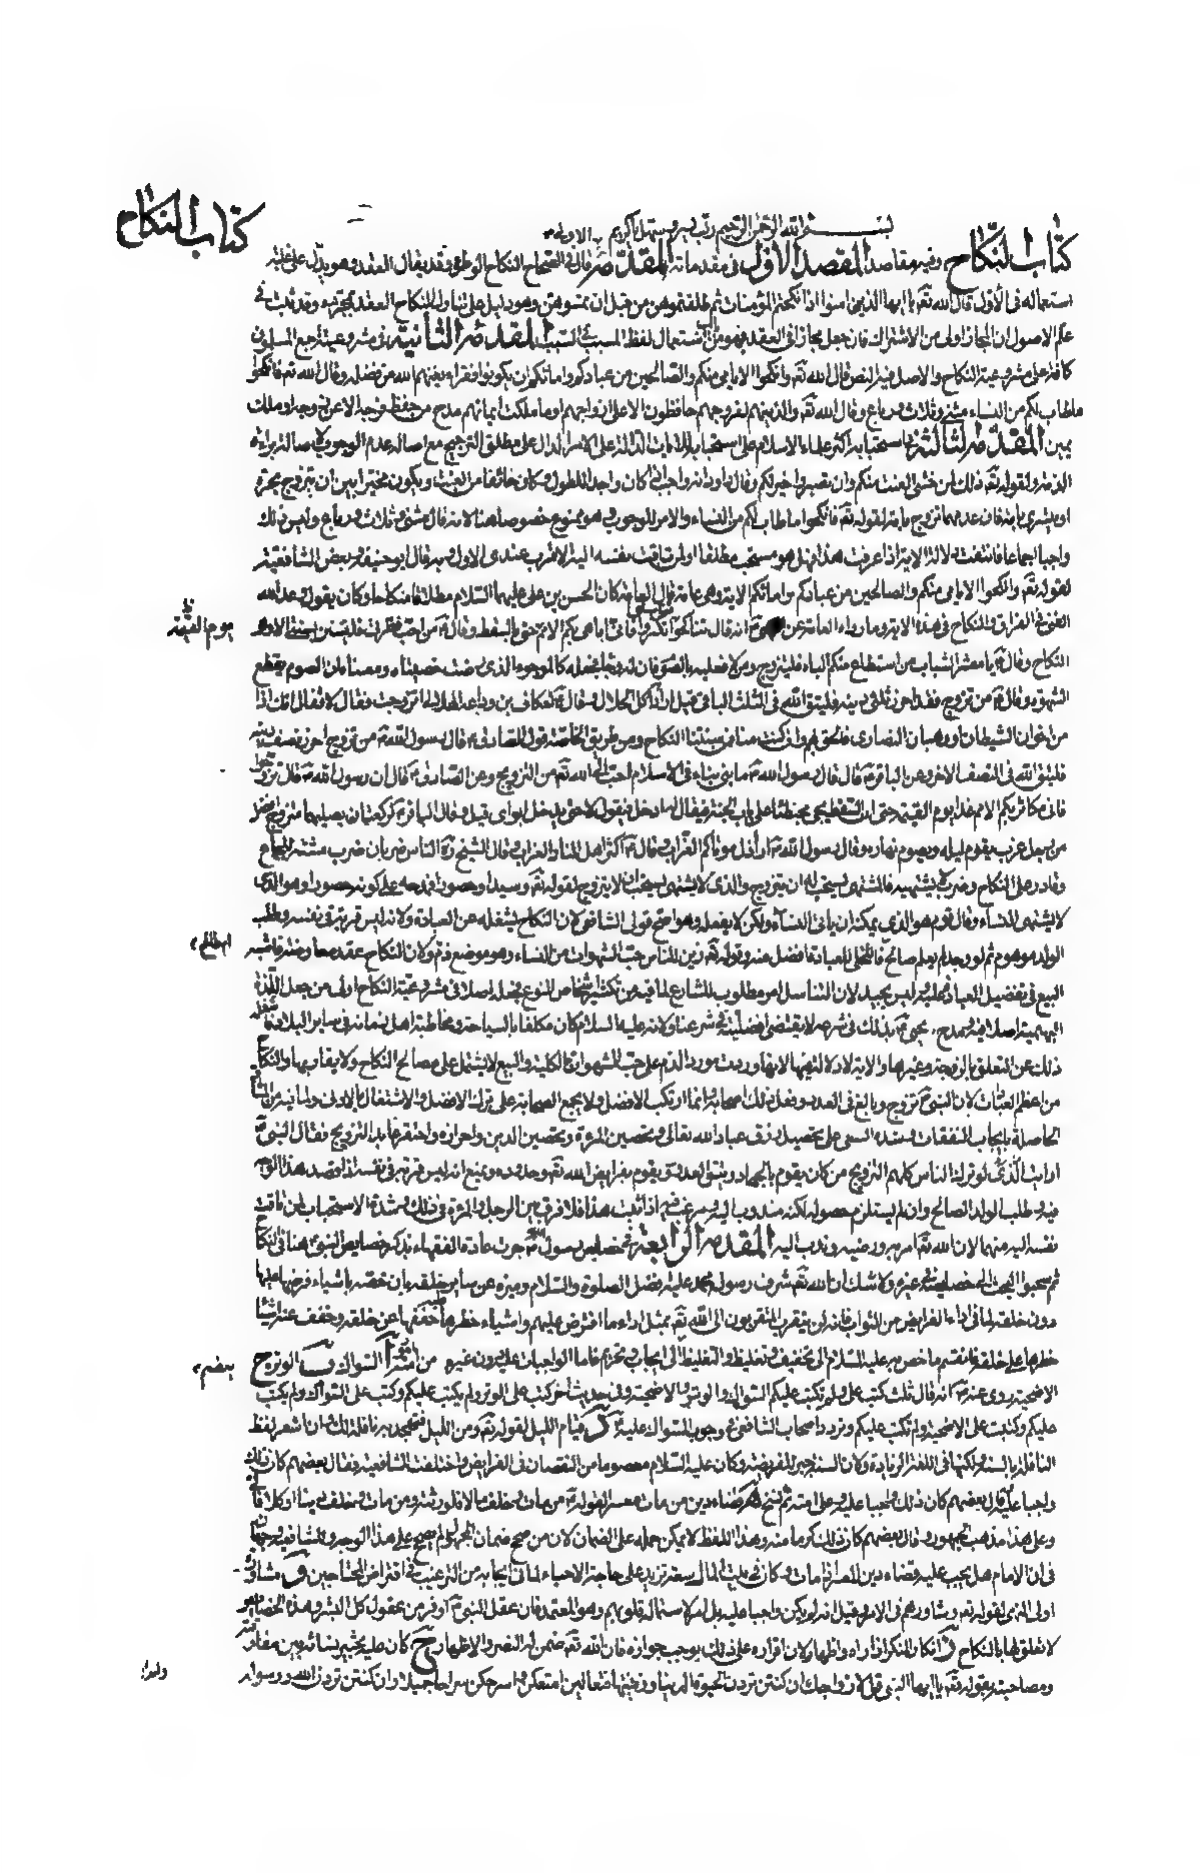 كتاب النكاح
بسم الله الرحمن الرحيم رب يسر وسهل يا كريم
كتاب النكاح وفيه مقاصد المقصد الاول في مقدماته المقدمة الاولى قال في الصحاح النكاح الوطي وقد يقال العقد وهو يدل على غلبة
استعماله في الاول قال الله تعالى يا ايها الذين امنوا اذا نكحتم المؤمنات ثم طلقتموهن من قبل ان تمسوهن وهو دليل على تناول النكاح العقد بمجرده وقد ثبت في
علم الاصول ان المجاز اولى من الاشتراك فان جعل مجازا في العقد فهو من باب استعمال لفظ المسبب في السبب المقدمة الثانية في مشروعيته اجمع المسلمون
كافة على مشروعية النكاح والاصل فيه النص قال الله تعالى وانكحوا الايامى منكم والصالحين من عبادكم وامائكم ان يكونوا فقراء يغنهم الله من فضله وقال الله تعالى فانكحوا
ما طاب لكم من النساء مثنى وثلاث ورباع وقال الله تعالى والذين هم لفروجهم حافظون الا على ازواجهم او ما ملكت ايمانهم مدح من حفظ فرجه الا عن زوجه او ملك
يمين المقدمة الثالثة في استحبابه اكثر علماء الاسلام على استحبابه للايات الدالة على الامر الدال على مطلق الترجيح مع اصالة عدم الوجوب واصالة براءة
الذمة ولقوله تعالى ذلك لمن خشي العنت منكم وان تصبروا خير لكم وقال داود انه واجب اذا كان واجدا للطول وكان خائفا من العنت ويكون مخيرا بين ان يتزوج بحرة
او يشتري بامة فان عدمهما تزوج بامة لقوله تعالى فانكحوا ما طاب لكم من النساء والامر للوجوب وهو ممنوع خصوصا هنا لانه قال مثنى وثلاث ورباع وليس ذلك
واجبا اجماعا فانتفت دلالة الاية اذا عرفت هذا فهل هو مستحب مطلقا او لمن تاقت نفسه اليه الاقرب عندي الاول وبه قال ابو حنيفة وبعض الشافعية
لقوله تعالى وانكحوا الايامى منكم والصالحين من عبادكم وامائكم الاية وهي عامة قال العامة كان الحسن بن علي عليهما السلام مطلاقا منكاحا وكان يقول وعد الله
الغنى في الفراق والنكاح في هذا الاية وما رواه العامة عن النبي انه قال تناكحوا تكثروا فاني اباهي بكم الامم حتى بالسقط وقال من احب فطرتي فليستن بسنتي الا وهي
يوم القيمة
النكاح وقال يا معشر الشباب من استطاع منكم الباه فليتزوج ومن لا فعليه بالصوم فان له وجاء
الشهوة وقال من تزوج فقد احرز ثلثي دينه فليتق الله في الثلث الباقي
من اخوان الشياطين او رهبان النصارى فالحق بهم وان كنت منا فمن سنتنا النكاح ومن طريق الخاصة قول الصادق قال رسول الله من تزوج احرز نصف دينه
فليتق الله في النصف الاخر وعن الباقر قال قال رسول الله ما بني بناء في الاسلام احب الى الله تعالى من التزويج وعن الصادق قال ان رسول الله قال تزوجوا
فاني مكاثر بكم الامم غدا يوم القيمة حتى ان السقط يجيء محبنطئا على باب الجنة فيقال له ادخل فيقول لا حتى يدخل ابواي قبلي وقال الباقر ركعتان يصليهما متزوج افضل
من رجل عزب يقوم ليله ويصوم نهاره وقال رسول الله اراذل موتاكم العزاب وقال اكثر اهل النار العزاب وقال الشيخ الناس ضربان ضرب مشته للجماع
وقادر على النكاح وضرب لا يشتهيه فالمشتهي يستحب له ان يتزوج والذي لا يشتهي يستحب ان لا يتزوج لقوله تعالى وسيدا وحصورا فمدحه على كونه حصورا وهو الذي
لا يشتهي النساء وقال قوم هو الذي يمكنه ان ياتي النساء ولكن لا يفعل وهو اصح قولي الشافعي لان النكاح يشغله عن العبادة ولانه ليس قربة في نفسه وطلب
الولد موهوم ثم لو وجد لم يعلم صالح فالتخلي للعبادة افضل منه وقوله تعالى زين للناس حب الشهوات من النساء وهو موضع ذم ولان النكاح عقد معاوضة فاشبه
ام طالح
البيع في تفضيل العبادة عليه وليس بجيد لان التناسل امر مطلوب للشارع لما فيه من تكثير اشخاص النوع فجعله اصلا في مشروعية النكاح اولى من جعل اللذة
البهيمية اصلا فيه ومدح يحيى بذلك في شرعه لا يقتضي افضليته في شرعنا ولانه عليه السلام كان مكلفا بالسياحة ومخاطبة اهل زمانه في ساير البلاد
ذلك عن التعلق بالزوجة وغيرها والاية لا دلالة فيها لانها وردت مورد الذم على حب الشهوات الكلية والبيع لا يشتمل على مصالح النكاح ولا يقاربها والنكاح
من اعظم العبادات لان النبي تزوج وبالغ في العدد وفعل ذلك اصحابه وانما ارتكب الافضل ولا يجمع الصحابة على ترك الافضل والاشتغال بالادنى ولما فيه من المشاق
الحاصلة بايجاب النفقات وشدة السعي على تحصيل رزق عباد الله تعالى وتحصين المرءة وتحصين الدين واحرازه
فيه وطلب الولد الصالح وان لم يستلزم حصوله لكنه مندوب اليه ومرغب فيه اذا ثبت هذا فلا فرق بين الرجل والمرءة في ذلك وشدة الاستحباب لمن تاقت
نفسه اليه منهما لان الله تعالى امر به ورضيه وندب اليه المقدمة الرابعة في خصايص رسول الله جرت عادة الفقهاء بذكر خصايص النبي هنا في النكاح
ثم سحبوا البحث الى خصايصه في غيره ولا شك ان الله تعالى شرف رسوله محمد عليه افضل الصلوة والسلام وميزه عن ساير خلقه بان خصه باشياء فرضها عليه
دون خلقه لما في اداء الفرايض من الثواب فانه لن يتقرب المتقربون الى الله تعالى بمثل اداء ما افترض عليهم واشياء حظرها خففها عن خلقه وخفف عنه اشياء
حظرها على خلقه فانقسم ما خص به عليه السلام الى تخفيف وتغليظ والتغليظ الى ايجاب وتحريم فاما الواجبات عليه دون غيره من امته امور ا السواك ب الوتر ج
بعضهم
الاضحية روي عنه انه قال ثلث كتب علي ولم تكتب عليكم السواك والوتر والاضحية وفي حديث اخر كتب علي الوتر ولم يكتب عليكم وكتب علي السواك ولم يكتب
عليكم وكتبت علي الاضحية ولم تكتب عليكم وتردد اصحاب الشافعي في وجوب السواك عليه د قيام الليل لقوله تعالى ومن الليل فتهجد به نافلة لك وان اشعر لفظ
النافلة بالسنة ولكنها في اللغة الزيادة ولان السنة جبر للفريضة وكان عليه السلام معصوما من النقصان في الفرايض واختلفت الشافعية فقال بعضهم كان ذلك
واجبا عليه وقال بعضهم كان ذلك واجبا عليه وعلى امته ثم نسخ ه قضاء دين من مات معسرا لقوله من مات وخلف مالا فلورثته ومن مات وخلف دينا او كلا فالي
وعلى هذا مذهب الجمهور وقال بعضهم كان ذلك تكرما منه وهذا اللفظ لا يمكن حمله على الضمان لان من صحح ضمان المجهول لم يصحح على هذا الوجه وللشافعية وجهان
في ان الامام هل يجب عليه قضاء دين المعسر اذا مات وكان في بيت المال سعة تزيد على حاجة الاحياء لما في ايجابه من الترغيب في اقتراض المحتاجين و مشاورة
اولي النهى لقوله تعالى وشاورهم في الامر وقيل انه لم يكن واجبا عليه بل امر لاستمالة قلوبهم وهو المعتمد فان عقل النبي اوفر من عقول كل البشر وهذه الخصايص
لا تعلق لها بالنكاح ز انكار المنكر اذا راه واظهاره لان اقراره على ذلك يوجب جوازه فان الله تعالى ضمن له النصر والاظهار ح كان عليه تخيير نسائه بين مفارقته
ومصاحبته بقوله تعالى يا ايها النبي قل لازواجك ان كنتن تردن الحيوة الدنيا وزينتها فتعالين امتعكن واسرحكن سراحا جميلا وان كنتن تردن الله ورسوله
والدار